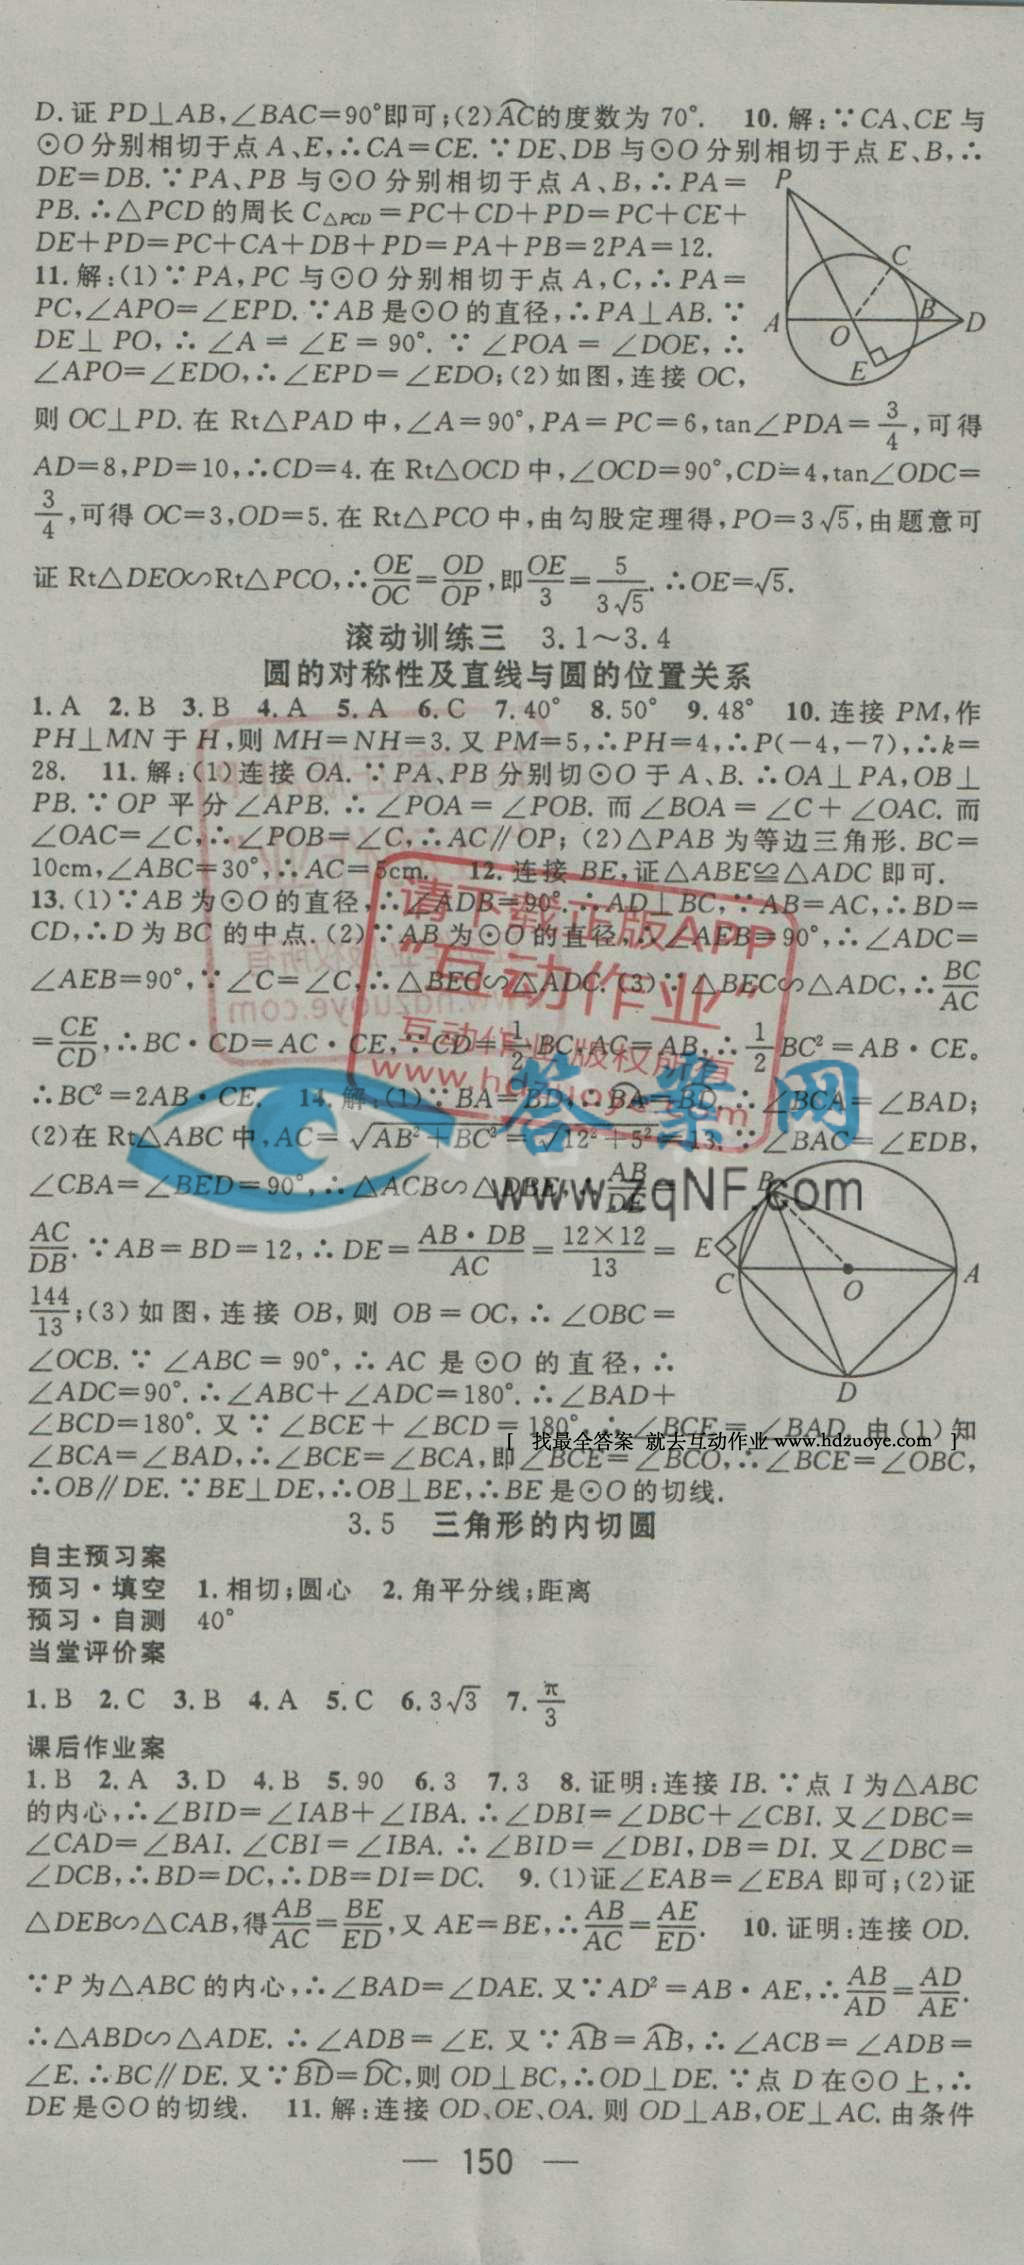 D.证 PD⊥AB,∠BAC=90°即可;(2)AC的度数为 70°. 10.解:∵CA、CE 与
⊙O 分别相切于点 A、E,∴CA=CE.∵DE、DB 与⊙O 分别相切于点 E、B,∴
DE=DB.∵PA、PB 与⊙O 分别相切于点 A、B,∴PA=
PB.∴△PCD 的周长 C△PCD=PC+CD+PD=PC+CE+
DE+PD=PC+CA+DB+PD=PA+PB=2PA=12.
11.解:(1)∵PA,PC 与⊙O 分别相切于点 A,C,∴PA=
PC,∠APO=∠EPD.∵AB 是⊙O 的直径,∴PA⊥AB.∵
DE⊥PO,∴∠A=∠E=90°.∵∠POA=∠DOE,∴
∠APO=∠EDO,∴∠EPD=∠EDO;(2)如图,连接 OC,
P
C
A
O
B
D
E
则 OC⊥PD.在 Rt△PAD 中,∠A=90°,PA=PC=6,tan∠PDA=3/4,可得
AD=8,PD=10,∴CD=4.在 Rt△OCD 中,∠OCD=90°,CD=4,tan∠ODC=
3/4,可得 OC=3,OD=5.在 Rt△PCO 中,由勾股定理得,PO=3√5,由题意可
证 Rt△DEO∽Rt△PCO,∴OE/OC=OD/OP,即OE/3=5/3√5.∴OE=√5.
滚动训练三 3.1~3.4
圆的对称性及直线与圆的位置关系
1.A 2.B 3.B 4.A 5.A 6.C 7.40° 8.50° 9.48° 10.连接 PM,作
PH⊥MN 于 H,则 MH=NH=3.又 PM=5,∴PH=4,∴P(-4,-7),∴k=
28. 11.解:(1)连接 OA.∵PA、PB 分别切⊙O 于 A、B.∴OA⊥PA,OB⊥
PB.∵OP 平分∠APB.∴∠POA=∠POB.而∠BOA=∠C+∠OAC.而
∠OAC=∠C,∴∠POB=∠C,∴AC∥OP;(2)△PAB 为等边三角形.BC=
10cm,∠ABC=30°,∴AC=5cm. 12.连接 BE,证△ABE≌△ADC 即可.
13.(1)∵AB 为⊙O 的直径,∴∠ADB=90°.∴AD⊥BC,∵AB=AC,∴BD=
CD,∴D 为 BC 的中点.(2)∵AB 为⊙O 的直径,∴∠AEB=90°,∴∠ADC=
∠AEB=90°,∵∠C=∠C,∴△BEC∽△ADC.(3)∵△BEC∽△ADC,∴BC/AC
=CE/CD,∴BC·CD=AC·CE,∵CD=1/2BC,AC=AB,∴1/2BC²=AB·CE。
∴BC²=2AB·CE. 14.解:(1)∵BA=BD,∴BA=BD.∴∠BCA=∠BAD;
(2)在 Rt△ABC 中,AC=√AB²+BC²=√12²+5²=13.∵∠BAC=∠EDB,
∠CBA=∠BED=90°,∴△ACB∽△DBE,∴AB/DE=
AC/DB.∵AB=BD=12,∴DE=AB·DB/AC=12×12/13=
144/13;(3)如图,连接 OB,则 OB=OC,∴∠OBC=
∠OCB.∵∠ABC=90°,∴AC 是⊙O 的直径,∴
∠ADC=90°.∴∠ABC+∠ADC=180°.∴∠BAD+
B
E
C
O
A
D
∠BCD=180°.又∵∠BCE+∠BCD=180°,∴∠BCE=∠BAD.由(1)知
∠BCA=∠BAD,∴∠BCE=∠BCA,即∠BCE=∠BCO,∴∠BCE=∠OBC,
∴OB∥DE.∵BE⊥DE,∴OB⊥BE,∴BE 是⊙O 的切线.
3.5 三角形的内切圆
自主预习案
预习·填空 1.相切;圆心 2.角平分线;距离
预习·自测 40°
当堂评价案
1.B 2.C 3.B 4.A 5.C 6.3√3 7.π/3
课后作业案
1.B 2.A 3.D 4.B 5.90 6.3 7.3 8.证明:连接 IB.∵点 I 为△ABC
的内心,∴∠BID=∠IAB+∠IBA.∴∠DBI=∠DBC+∠CBI.又∠DBC=
∠CAD=∠BAI.∠CBI=∠IBA.∴∠BID=∠DBI,DB=DI.又∠DBC=
∠DCB,∴BD=DC,∴DB=DI=DC. 9.(1)证∠EAB=∠EBA 即可;(2)证
△DEB∽△CAB,得AB/AC=BE/ED,又 AE=BE,∴AB/AC=AE/ED. 10.证明:连接 OD.
∵P 为△ABC 的内心,∴∠BAD=∠DAE.又∵AD²=AB·AE,∴AB/AD=AD/AE.
∴△ABD∽△ADE.∴∠ADB=∠E.又∵AB=AB,∴∠ACB=∠ADB=
∠E.∴BC∥DE.又∵BD=DC,则 OD⊥BC,∴OD⊥DE.∵点 D 在⊙O 上,∴
DE 是⊙O 的切线. 11.解:连接 OD、OE、OA.则 OD⊥AB,OE⊥AC.由条件
— 150 —
请下载正版APP
“互动作业”
互动作业版权所有
www.hdzuoye.com
答案网
www.zqNF.com
[ 找最全答案 就去互动作业 www.hdzuoye.com ]